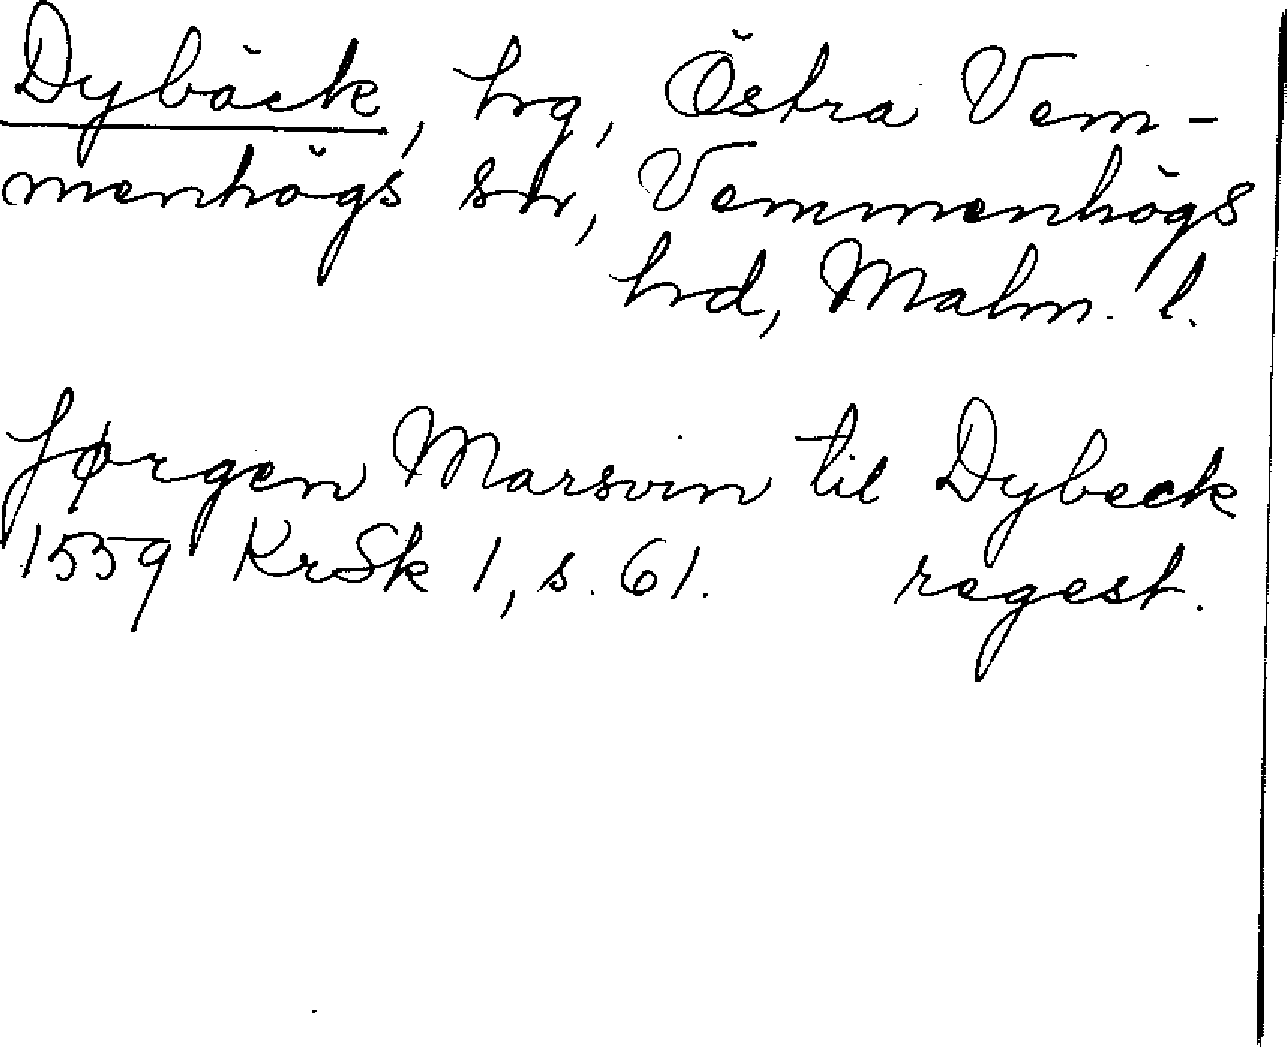 Dybäck, hrg, Östra Vem-
menhögs sn, Vemmenhögs
hrd, Malm. l.
Jørgen Marsvin til Dybeck
1559 KrSk 1, s. 61. regest.